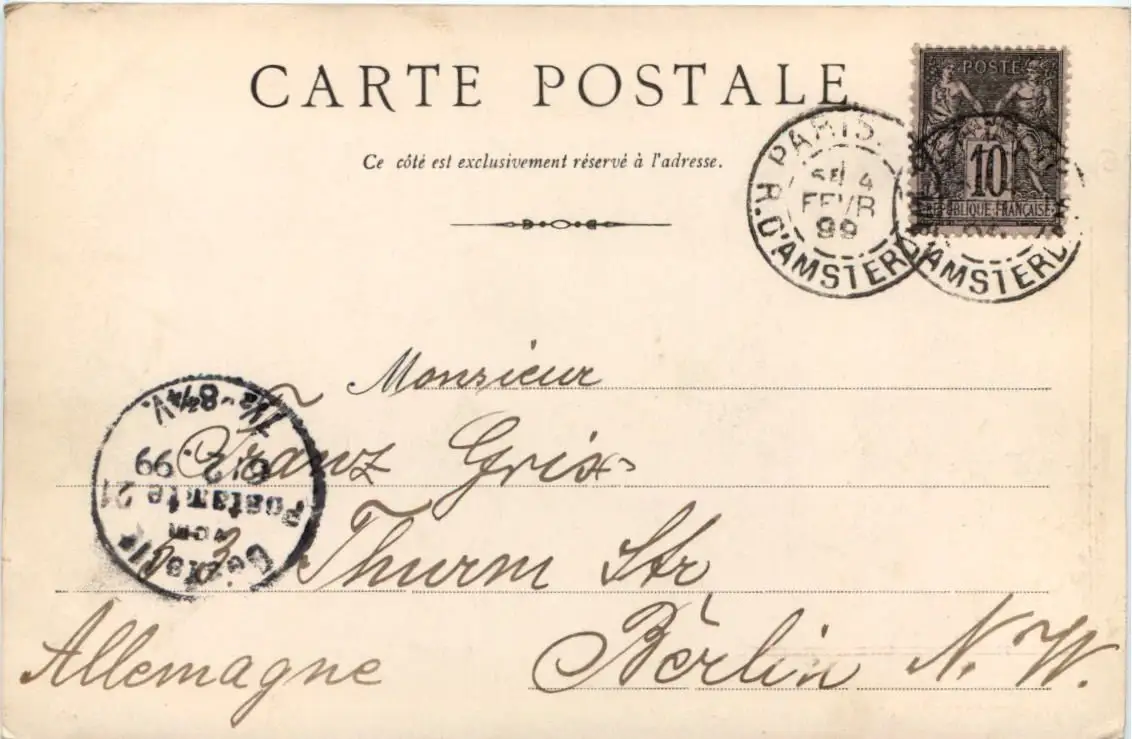 CARTE POSTALE
Ce côté est exclusivement réservé à l'adresse.
POSTE
10
REPUBLIQUE FRANÇAISE
PARIS.
4
FEVR
99
R. D'AMSTERD
AMSTERD
Monsieur
Franz Grix
53 Thurm Str
Berlin N.W.
Allemagne
Bestellt
vom
Postamte 21
6.2. 99
7½-8¼V.